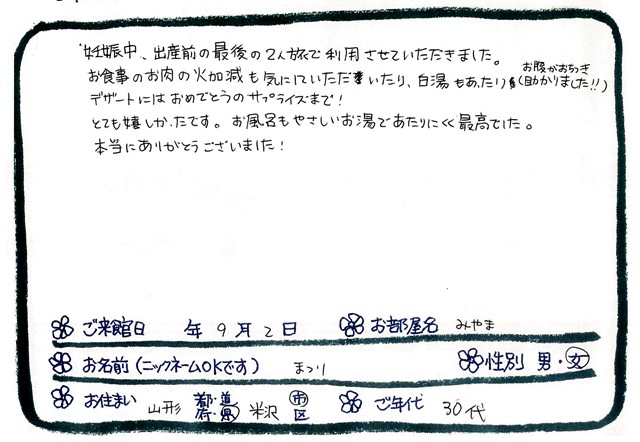 妊娠中、出産前の最後の2人旅で利用させていただきました。
お腹がおちつき
お食事のお肉の火加減も気にしていただいたり、白湯もあたり(助かりました!!)
デザートにはおめでとうのサプライズまで!
とても嬉しかたです。お風呂もやさしいお湯であたりにくく最高でした。
本当にありがとうございました!
ご来館日 年 9月 2日 お部屋名 みやま
お名前(ニックネームOKです) まつり 性別 男・女
お住まい 山形 都・道 府・県 米沢 市 区 ご年代 30代